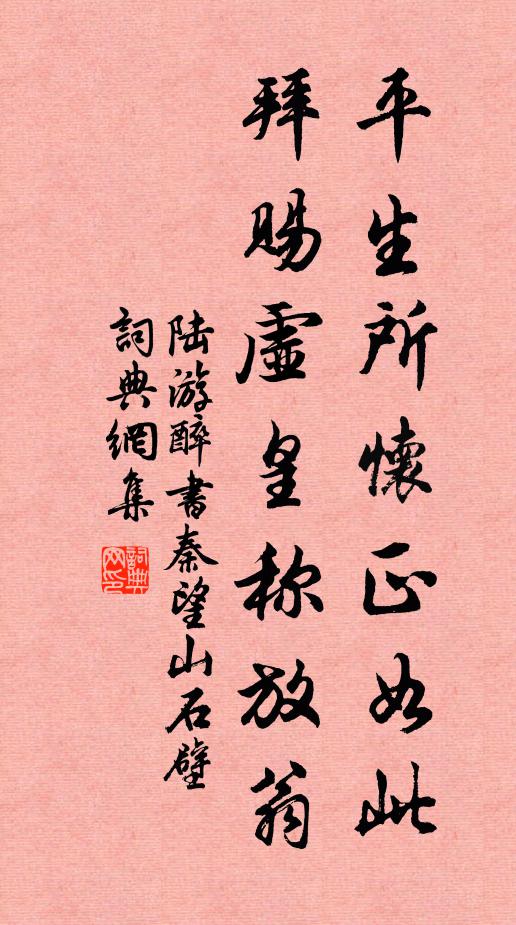 平生所懷正如此
拜賜虛皇称放翁
陆游醉書秦望山石壁
詞典網集
詞典网印